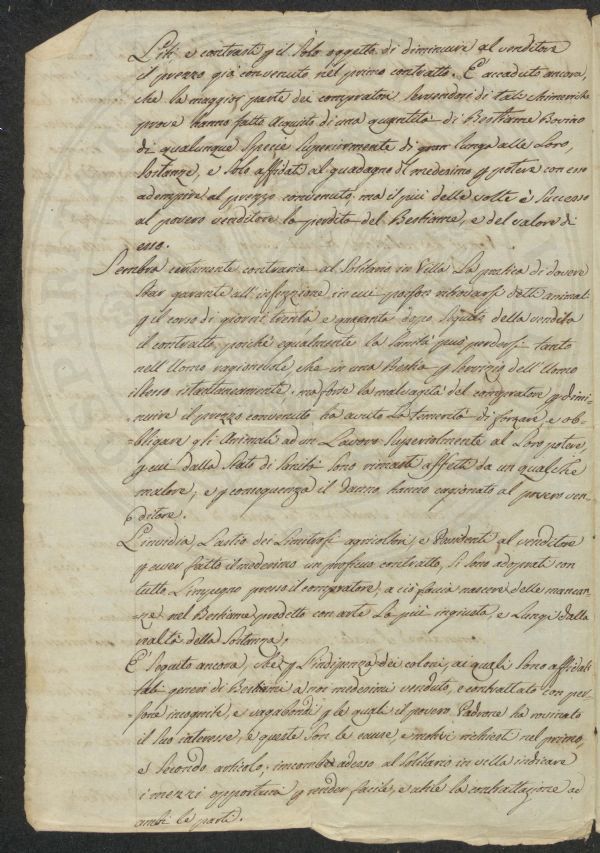 Liti e contrasti p il solo oggetto di diminuire al venditore
il prezzo già convenuto nel primo contratto. E' accaduto ancora,
che la maggior parte dei compratori servendosi di tali chimeriche
prove hanno fatto acquisto di una quantità di Bestiame Bovino
di qualunque specie superiormente di gran lunga alle loro,
sostanze, e solo affidati al guadagno del medesimo p potere con esso
adempire al prezzo convenuto, ma il più delle volte è successo
al povero venditore la perdita del Bestiame, e del valore di
esso.
Sembra certamente contraria al Solitario in Villa la pratica di dovere
star garante all'infezzione in cui possono ritrovarsi detti animali
p il corso di giorni trenta e quaranta dopo seguito della vendita
il contratto, poiche egualmente la sanità può perdersi tanto
nell'Uomo ragionevole, che in una Bestia p servizio dell'Uomo
istesso istantaneamente. ma forse la malvagità del compratore p dimi-
nuire il prezzo convenuto ha avuto la temerità di forzare, e ob-
bligare gli animali ad un lavoro superiormente al loro potere
p cui dallo stato di sanità sono rimasti affetti da un qualche
malore, e p conseguenza il danno hanno cagionato al povero ven-
ditore.
L'invidia, l'astio dei limitrofi agricoltori, e al venditore
p aver fatto il medesimo un proficuo contratto, si sono adoprati con
tutto l'impegno presso il compratore, a ciò faccia nascere delle mancan-
ze nel Bestiame predetto con arte la più ingiusta, e lungi dalla
realtà della sostanza.
E' seguito ancora, che p l'indigenza dei coloni, ai quali sono affidati
tali generi di Bestiami a noi medesimi venduto, e contrattato con per-
sone incognite, e vagabondi p le quali il povero Padrone ha
il suo interesse, e queste son le cause, e motivi richiesti nel primo,
e secondo articolo, incombe adesso al Solitario in villa indicare
i mezzi opportuni p render facile, e utile la contrattazione ad
ambi le parti.